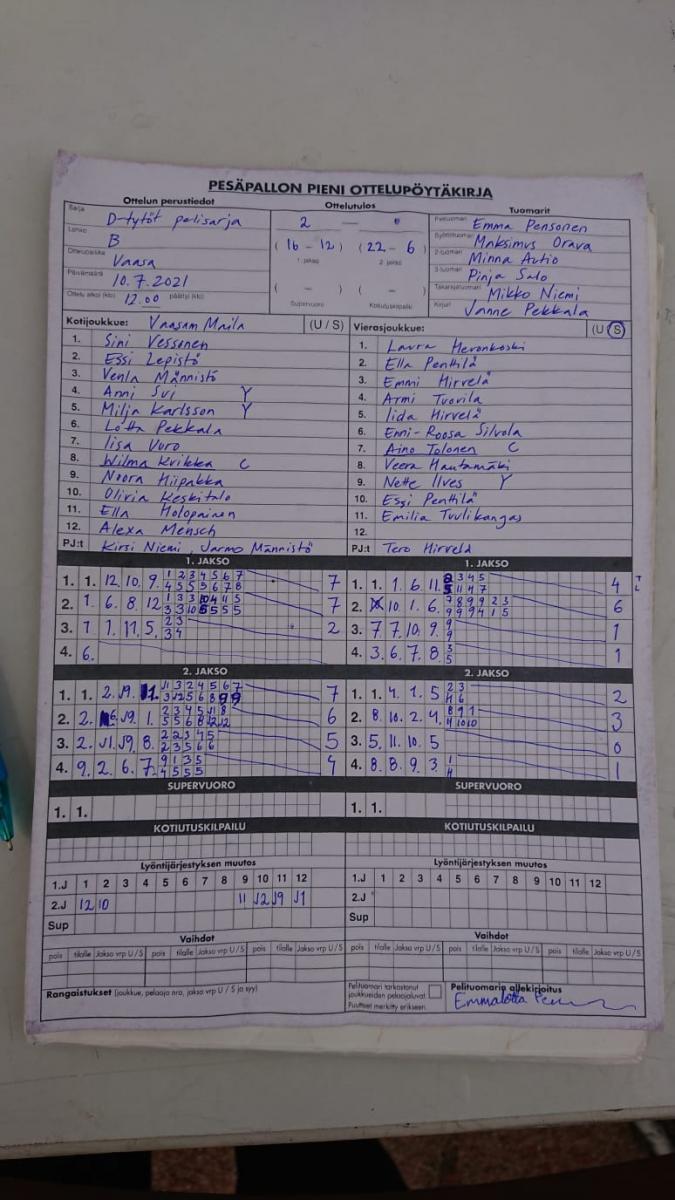 PESÄPALLON PIENI OTTELUPÖYTÄKIRJA
Ottelun perustiedot
Sarja D-tytöt pelisarja
Lohko B
Ottelupaikka Vaasa
Päivämäärä 10.7.2021
Ottelu alkoi (klo) 12.00 päättyi (klo)
Ottelutulos
2 —
(16 - 12) (22 - 6)
1. jakso 2. jakso
( - ) ( - )
Supervuoro Kotiutuskilpailu
Tuomarit
Pelituomari Emma Pensonen
Syöttötuomari Maksimus Orava
2-tuomari Minna Autio
3-tuomari Pinja Salo
Takarajatuomari Mikko Niemi
Kirjuri Janne Pekkala
Kotijoukkue: Vaasan Maila (U / S)
1. Sini Vessonen
2. Essi Lepistö
3. Venla Männistö
4. Anni Sui Y
5. Milja Karlsson Y
6. Lotta Pekkala
7. Iisa Vuro
8. Wilma Kvikka C
9. Noora Hiipakka
10. Olivia Keskitalo
11. Ella Holopainen
12. Alexa Mensch
PJ:t Kirsi Niemi, Jarmo Männistö
Vierasjoukkue: (U / S)
1. Laura Heronkoski
2. Ella Penttilä
3. Emmi Hirvelä
4. Armi Tuovila
5. Iida Hirvelä
6. Enni-Roosa Silvola
7. Aino Tolonen C
8. Veera Hautamäki
9. Nette Ilves Y
10. Essi Penttilä
11. Emilia Tuulikangas
12.
PJ:t Tero Hirvelä
1. JAKSO
1. 1. 12. 10. 9. 1 2 3 4 5 6 7 7
4 5 5 5 6 7 8
2. 1. 6. 8. 12 7
3. 1 1. 11. 5. 2 3 2
3 4
4. 6.
1. JAKSO
1. 1. 1. 6. 11. 3 4 5 4
2. 10. 1. 6. 7 8 9 9 2 3 6
9 9 9 4 1 5
3. 7 7. 10. 9. 9 1
9
4. 3. 6. 7. 8 3 1
5
2. JAKSO
1. 1. 2. J9. 7
2. 2. J9. 1. 6
3. 2. J1. J9. 8. 2 2 3 4 5 5
2 3 5 6 6
4. 9. 2. 6. 7. 9 1 3 5 4
4 5 5 5
2. JAKSO
1. 1. 4. 1. 5 2 3 2
4 6
2. 8. 10. 2. 4. 8 9 1 3
11 10 10
3. 5. 11. 10. 5 0
4. 8. 8. 9. 3 1 1
4
SUPERVUORO
1. 1.
SUPERVUORO
1. 1.
KOTIUTUSKILPAILU
KOTIUTUSKILPAILU
Lyöntijärjestyksen muutos
1.J 1 2 3 4 5 6 7 8 9 10 11 12
2.J 12 10 11 J2 J9 J1
Sup
Lyöntijärjestyksen muutos
1.J 1 2 3 4 5 6 7 8 9 10 11 12
2.J
Sup
Vaihdot
pois tilalle Jakso vrp U / S pois tilalle Jakso vrp U / S pois tilalle Jakso vrp U / S
Vaihdot
pois tilalle Jakso vrp U / S pois tilalle Jakso vrp U / S pois tilalle Jakso vrp U / S
Rangaistukset (joukkue, pelaaja nro, jakso vrp U / S ja syy)
Pelituomari tarkastanut
joukkueiden pelaajaluvat
Puutteet merkitty erikseen.
Pelituomarin allekirjoitus
Emmalotta